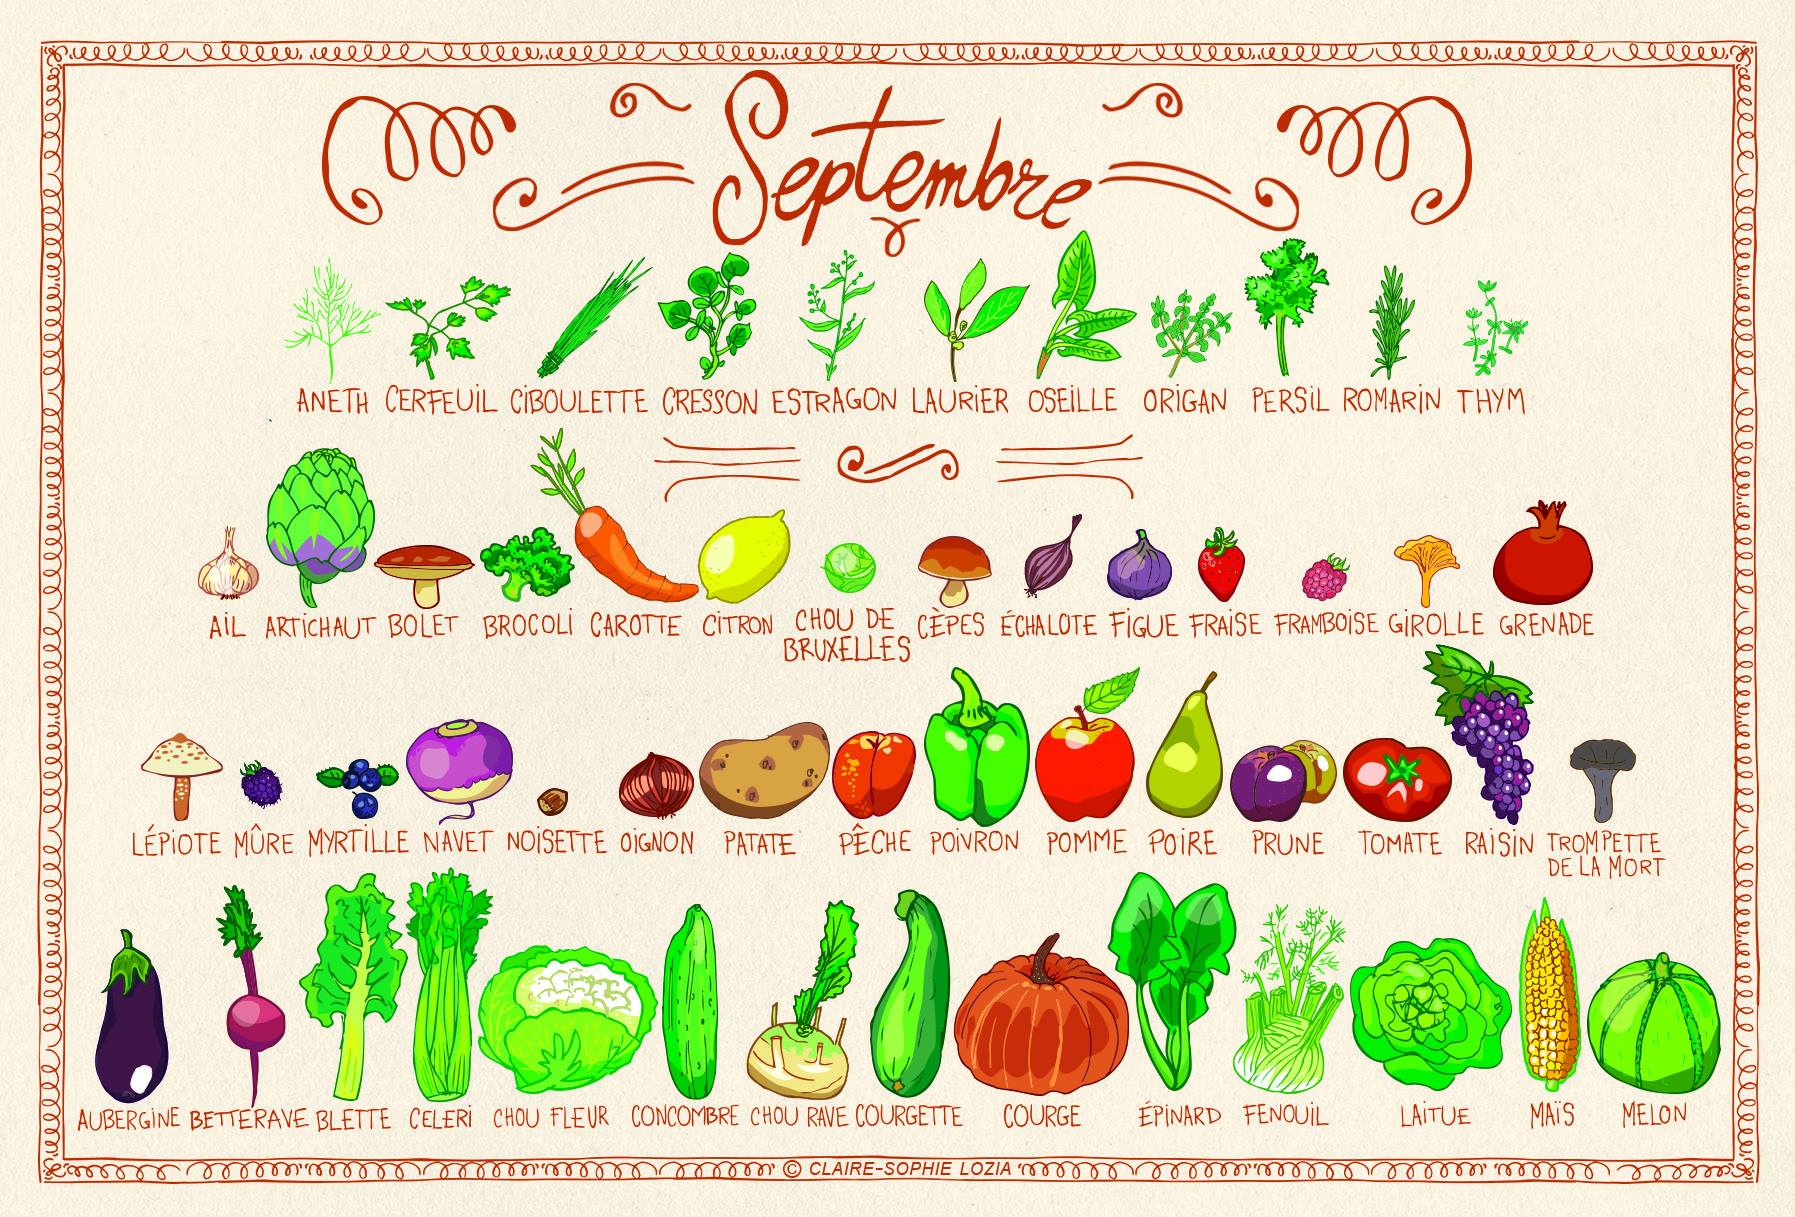 Septembre
ANETH CERFEUIL CIBOULETTE CRESSON ESTRAGON LAURIER OSEILLE ORIGAN PERSIL ROMARIN THYM
AIL ARTICHAUT BOLET BROCOLI CAROTTE CITRON CHOU DE BRUXELLES CÈPES ÉCHALOTE FIGUE FRAISE FRAMBOISE GIROLLE GRENADE
LÉPIOTE MÛRE MYRTILLE NAVET NOISETTE OIGNON PATATE PÊCHE POIVRON POMME POIRE PRUNE TOMATE RAISIN TROMPETTE DE LA MORT
AUBERGINE BETTERAVE BLETTE CELERI CHOU FLEUR CONCOMBRE CHOU RAVE COURGETTE COURGE ÉPINARD FENOUIL LAITUE MAÏS MELON
© CLAIRE-SOPHIE LOZIA